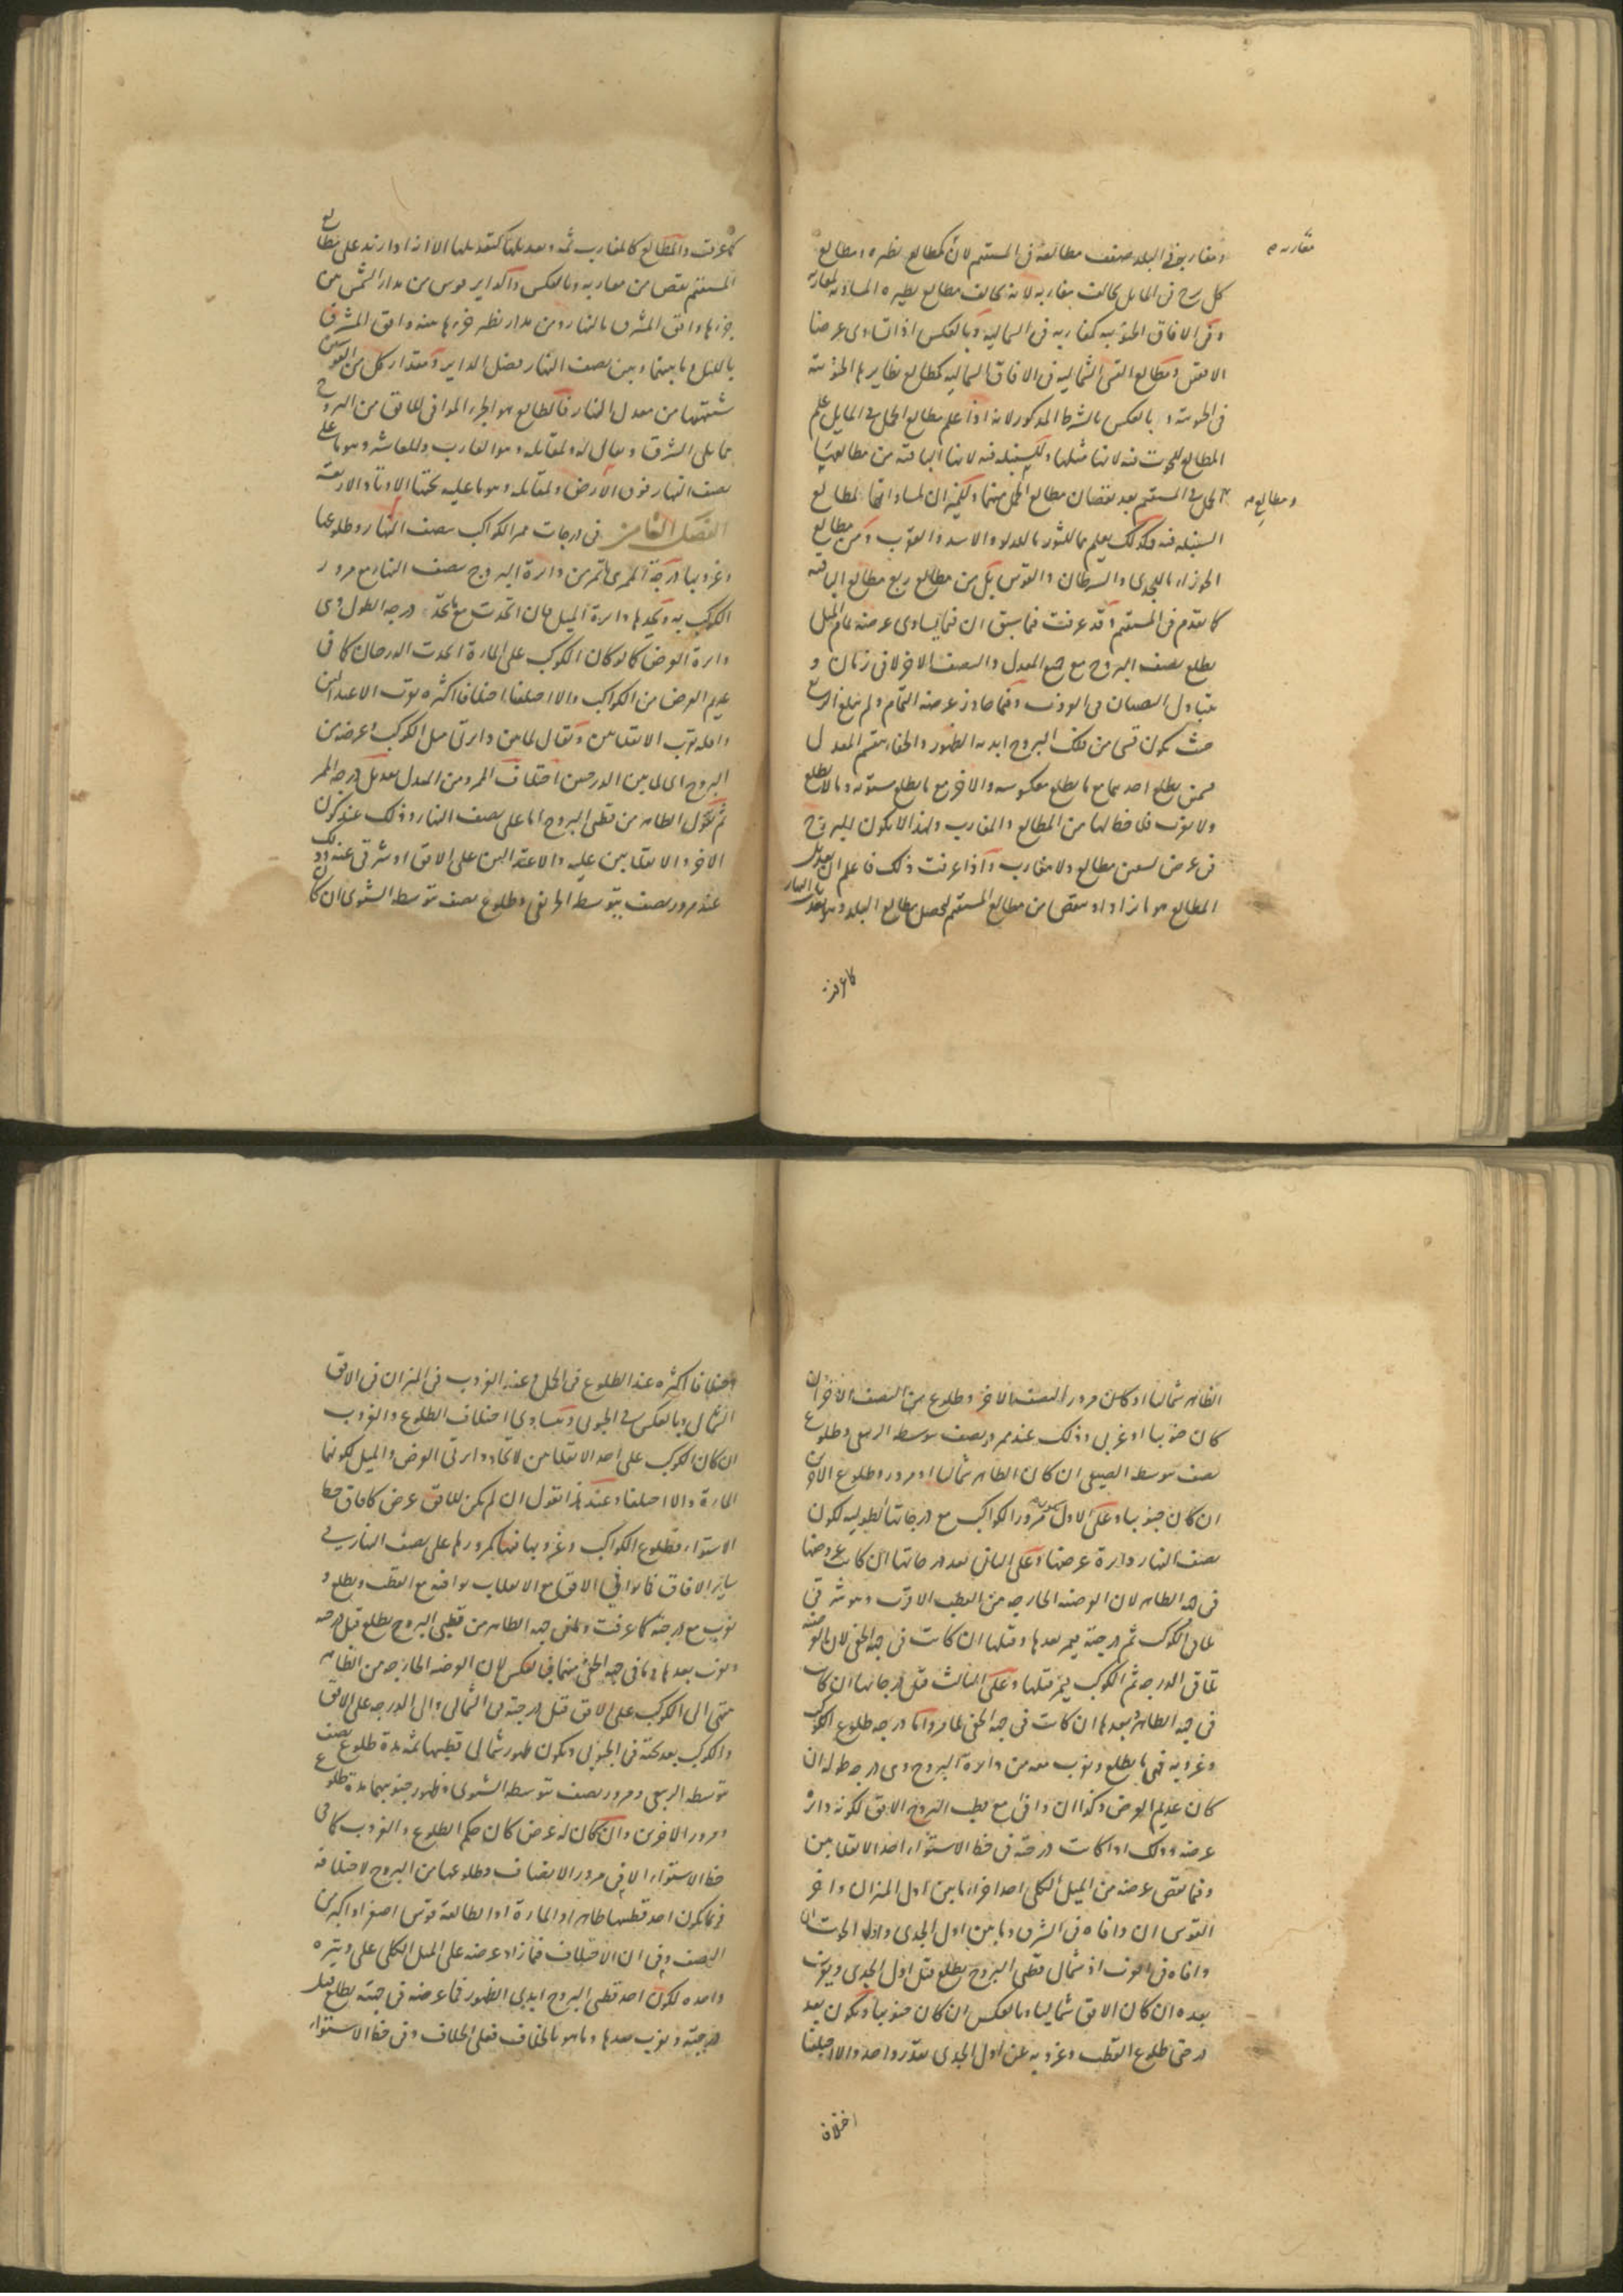 ومغاربه فى البلد ضعف مطالعه فى المستقيم لان كمطالع نظيره ومطالع
مغاربه
كل برج فى المايل يخالف مغاربه لانه يخالف مطالع نظيره المساويه لمغاربه
وفى الافاق الجنوبيه كمغاربه فى الشماليه وبالعكس اذا تساوى عرضا
الافقين ومطالع القسى الشماليه فى الافاق الشماليه كمطالع نظايرها الجنوبية
فى الجنوبية وبالعكس بالشرط المذكور لانه اذا علم مطالع الحمل فى المايل علم
المطالع للحوت فيه لانها مثلها وللسنبله فيه لانها الباقية من مطالعهما
الحمل فى المستقيم بعد نقصان مطالع الحمل منهما وللميزان لمساواتها لمطالع
ومطالع
السنبله فيه وكذلك يعلم ما للثور ما للدلو والاسد والعقرب ومن مطالع
الجوزاء ما للجدى والسرطان والقوس بل من مطالع ربع مطالع الباقيه
كما تقدم فى المستقيم وقد عرفت فيما سبق ان فيما يساوى عرضه تمام الميل
يطلع نصف البروج مع جميع المعدل والنصف الاخر لا فى زمان و
يتبادل النصفان فى الغروب وفيما جاوز عرضه التمام ولم يبلغ الربع
حيث يكون قسى من فلك البروج ابديه الظهور والخفاء ينقسم المعدل
قسمين يطلع احدهما مع ما يطلع معكوسه والاخر مع ما يطلع مستويه وما لا يطلع
ولا يغرب فلا حظ لها من المطالع والمغارب ولهذا لا يكون للبروج
فى عرض تسعين مطالع ولا مغارب واذا عرفت ذلك فاعلم ان تعديل
المطالع هو ما يزاد او ينقص من مطالع المستقيم لتحصل مطالع البلد وهو تعديل النهار
كما عرفت
كما عرفت والمطالع كالمغارب ثمه وتعديلها كتعديلها الا انه اذا زيد على مطالع
المستقيم ينقص من مغاربه وبالعكس والدايره قوس من مدار الشمس بين
جزءها وافق المشرق بالنهار ومن مدار نظير جزءها بينه وافق المشرق
بالليل وما بينهما وبين نصف النهار فضل الداير ومقدار كل من القوسين
شبيهتها من معدل النهار فالطالع هو الجزء الموافى للافق من البروج
مما يلى الشرق ويقال له ولمقابله وهو الغارب وللعاشر وهو ما على
نصف النهار فوق الارض ولمقابله وهو ما عليه تحتها الاوتاد الاربعة
الفصل الثامن فى درجات ممر الكواكب بنصف النهار وطلوعها
وغروبها درجة الممر هى ما تمر من دائرة البروج بنصف النهار مع مرور
الكوكب به ويحدها دائرة الميل فان اتحدت مع ما يحد درجه الطول وهى
دائرة العرض كما لو كان الكوكب على المارة اتحدت الدرجتان كما فى
عديم العرض من الكواكب والا اختلفتا اختلافا اكثره بقرب الاعتدالين
واقله بقرب الانقلابين ويقال لما بين دائرتى ميل الكوكب وعرضه من
البروج اى لما بين الدرجتين اختلاف الممر ومن المعدل تعديل درجه الممر
ثم نقول الظاهر من قطبى البروج اما على نصف النهار وذلك عند كون
الاخر والانقلابين عليه والاعتدالين على الافق او شرقى عنه وذلك
عند مرور نصف يتوسط الخريفى وطلوع نصف يتوسط الشتوى ان كان
الظاهر شماليا او كان مرور النصف الاخر وطلوع النصف الاخر ان
كان جنوبيا او غربى وذلك عند مرور نصف يتوسطه الربيعى وطلوع
نصف يتوسطه الصيفى ان كان الظاهر شماليا او مرور وطلوع الاخرين
ان كان جنوبيا وعلى الاول مرور الكواكب مع درجاتها الطوليه لكون
نصف النهار دائرة عرضها وعلى الثانى بعد درجاتها ان كانت عروضها
فى جهة الظاهر لان العرضيه الخارجه من القطب الاقرب وهو شرقى
تلاقى الكوكب ثم درجته فيمر بعدها وقبلها ان كانت فى جهة الخفى لان العرضيه
تلاقى الدرجه ثم الكوكب فيمر قبلها وعلى الثالث قبل درجاتها ان كانت
فى جهة الظاهر وبعدها ان كانت فى جهة الخفى لما مر واما درجه طلوع الكوكب
وغروبه فهى ما يطلع ويغرب معه من دائرة البروج وهى درجه طوله ان
كان عديم العرض وكذا ان وافى مع قطب البروج الافق لكونه دائرة
عرضه وذلك اذا كانت درجته فى خط الاستواء احد الانقلابين
وفيما نقص عرضه من الميل الكلى احد اجزاء ما بين اول الميزان واخر
القوس ان وافاه فى الشرق وما بين اول الجدى واول الحوت ان
وافاه فى الغرب اذ شمالى قطبى البروج يطلع قبل اول الجدى ويغرب
بعده ان كان الافق شماليا وبالعكس ان كان جنوبيا ويكون بعد
درجتى طلوع القطب وغروبه عن اول الجدى بقدر واحد والا اختلفتا
اختلافا
اختلافا اكثره عند الطلوع فى الحمل وعند الغروب فى الميزان فى الافق
الشمالى وبالعكس فى الجنوبى ويتساوى اختلاف الطلوع والغروب
ان كان الكوكب على احد الانقلابين لاتحاد دائرتى العرض والميل لكونهما
المارة والا اختلفا وعند هذا نقول ان لم يكن للافق عرض كافاق خط
الاستواء فطلوع الكواكب وغروبها فيها كمرورها على نصف النهار فى
ساير الافاق فما وافى الافق مع الانقلاب يوافيه مع القطب ويطلع و
يغرب مع درجته كما عرفت وما فى جهة الظاهر من قطبى البروج يطلع قبل درجته
ويغرب بعدها وما فى جهة الخفى منهما فبالعكس لان العرضيه الخارجه من الظاهر
تنتهى الى الكوكب على الافق قبل درجته فى الشمالى والى الدرجه على الافق
والكوكب بعد تحته فى الجنوبى ويكون ظهور شمالى قطبيها ثمه مدة طلوع نصف
يتوسطه الربيعى ومرور نصف يتوسطه الشتوى وظهور جنوبيهما مدة طلوع
ومرور الاخرين وان كان له عرض كان حكم الطلوع والغروب كما فى
خط الاستواء الا فى مرور الانصاف وطلوعها من البروج لاختلافه
فربما يكون احد قطبيها ظاهرا والمارة او الطالعة قوس اصغر او اكبر من
النصف وفى ان الاختلاف فيما زاد عرضه على الميل الكلى على وتيرة
واحده لكون احد قطبى البروج ابدى الظهور فما عرضه فى جهته يطلع قبل
درجته ويغرب بعدها وما هو بالخلاف فعلى الخلاف وفى خط الاستواء